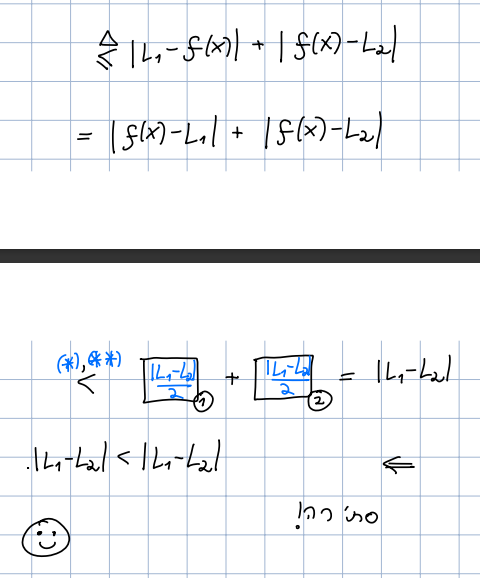 ≤^Δ |L₁-f(x)| + |f(x)-L₂|
= |f(x)-L₁| + |f(x)-L₂|
(*),(**)
< |L₁-L₂|/2 ① + |L₁-L₂|/2 ② = |L₁-L₂|
.|L₁-L₂| < |L₁-L₂| ⇐